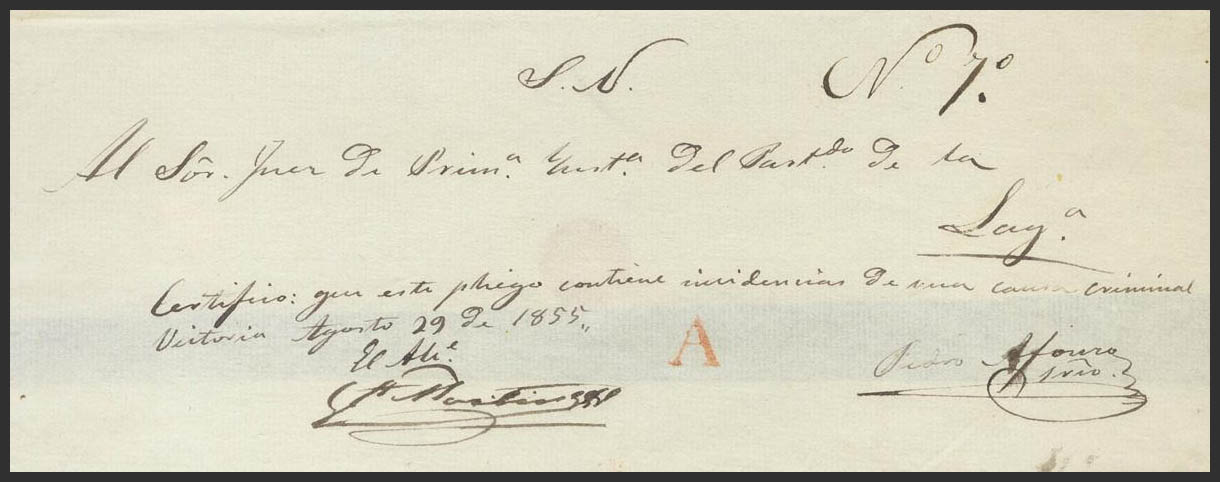 S. N. Nº 7º.
Al Sôr. Juez de Prim.ª Ynst.ª del Part.do de la
Lag.ª
Certifico: que este pliego contiene incidencias de una causa criminal
Victoria Agosto 29 de 1855.,
El Alc.e
Martinez
A
Pedro Afonso
srio.